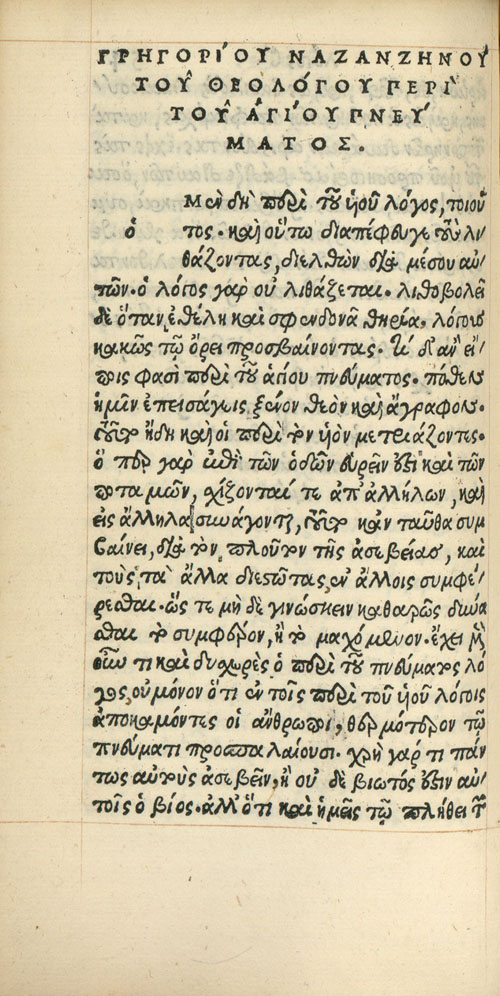 ΓΡΗΓΟΡΙ´ΟΥ ΝΑΖΑΝΖΗΝΟΥ῀
ΤΟΥ῀ ΘΕΟΛΟ´ΓΟΥ ΠΕΡΙ`
ΤΟΥ῀ ἉΓΙ´ΟΥ ΠΝΕΥ´
ΜΑΤΟΣ.
Μὲν δὴ περὶ τοῦ ἡοῦ λόγος, τοιοῦ
ὁ τος· καὶ οὕτω διαπέφευγε τοὺς λι
θάζοντας, διελθὼν διὰ μέσου αὐ
τῶν· ὁ λόγος γὰρ οὐ λιθάζεται· λιθοβολεῖ
δὲ ὅταν ἐθέλῃ καὶ σφενδονᾶ θηρία, λόγους
κακῶς τῷ ὄρει προσβαίνοντας· τί δ' ἂν εἴ
ποις φασὶ περὶ τοῦ ἁγίου πνεύματος· πόθεν
ἡμῖν ἐπεισάγεις ξένον θεὸν καὶ ἄγραφον·
τοῦτο ἤδη καὶ οἱ περὶ τὸν ἡὸν μετριάζοντες·
ὅ περ γὰρ ἐπὶ τῶν ὁδῶν εὑρεῖν ἔστι καὶ τῶν
ποταμῶν, σχίζονταί τε ἀπ' ἀλλήλων, καὶ
εἰς ἄλληλα συνάγονται, τοῦτο κἂν ταῦθα συμ
βαίνει, διὰ τὸν πλοῦτον τῆς ἀσεβείας, καὶ
τοὺς τὰ ἄλλα διεστῶτας, ἐν ἄλλοις συμφέ
ρεσθαι· ὥς τε μὴ δὲ γινώσκειν καθαρῶς δύνα
σθαι τὸ συμφέρον, ἢ τὸ μαχόμενον· ἔχει μὲν
οὖν τι καὶ δυσχερὲς ὁ περὶ τοῦ πνεύματος λό
γος, οὐ μόνον ὅτι ἐν τοῖς περὶ τοῦ ἡοῦ λόγοις
ἀποκαμόντες οἱ ἄνθρωποι, θερμότερον τῷ
πνεύματι προσπαλαίουσι· χρὴ γάρ τι πάν
τως αὐτοὺς ἀσεβεῖν, ἢ οὐ δὲ βιωτός ἐστιν αὐ
τοῖς ὁ βίος· ἀλλ' ὅτι καὶ ἡμεῖς τῷ πλήθει τῶν